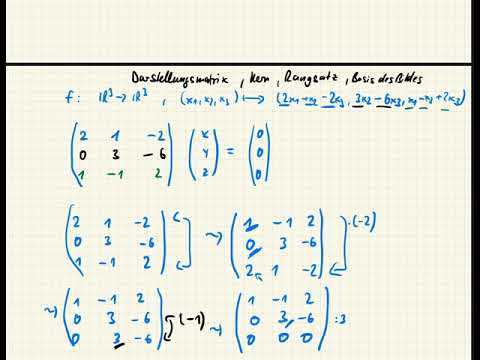 Darstellungsmatrix, Kern, Rangsatz, Basis des Bildes
f: ℝ³ → ℝ³, (x₁, x₂, x₃) ↦ (2x₁+x₂-2x₃, 3x₂-6x₃, x₁-x₂+2x₃)
2 1 -2 x 0
0 3 -6 y = 0
1 -1 2 z 0
2 1 -2 1 -1 2 ·(-2)
0 3 -6 ⇝ 0 3 -6
1 -1 2 2 1 -2
⇝ 1 -1 2 1 -1 2
0 3 -6 (-1) ⇝ 0 3 -6 :3
0 3 -6 0 0 0